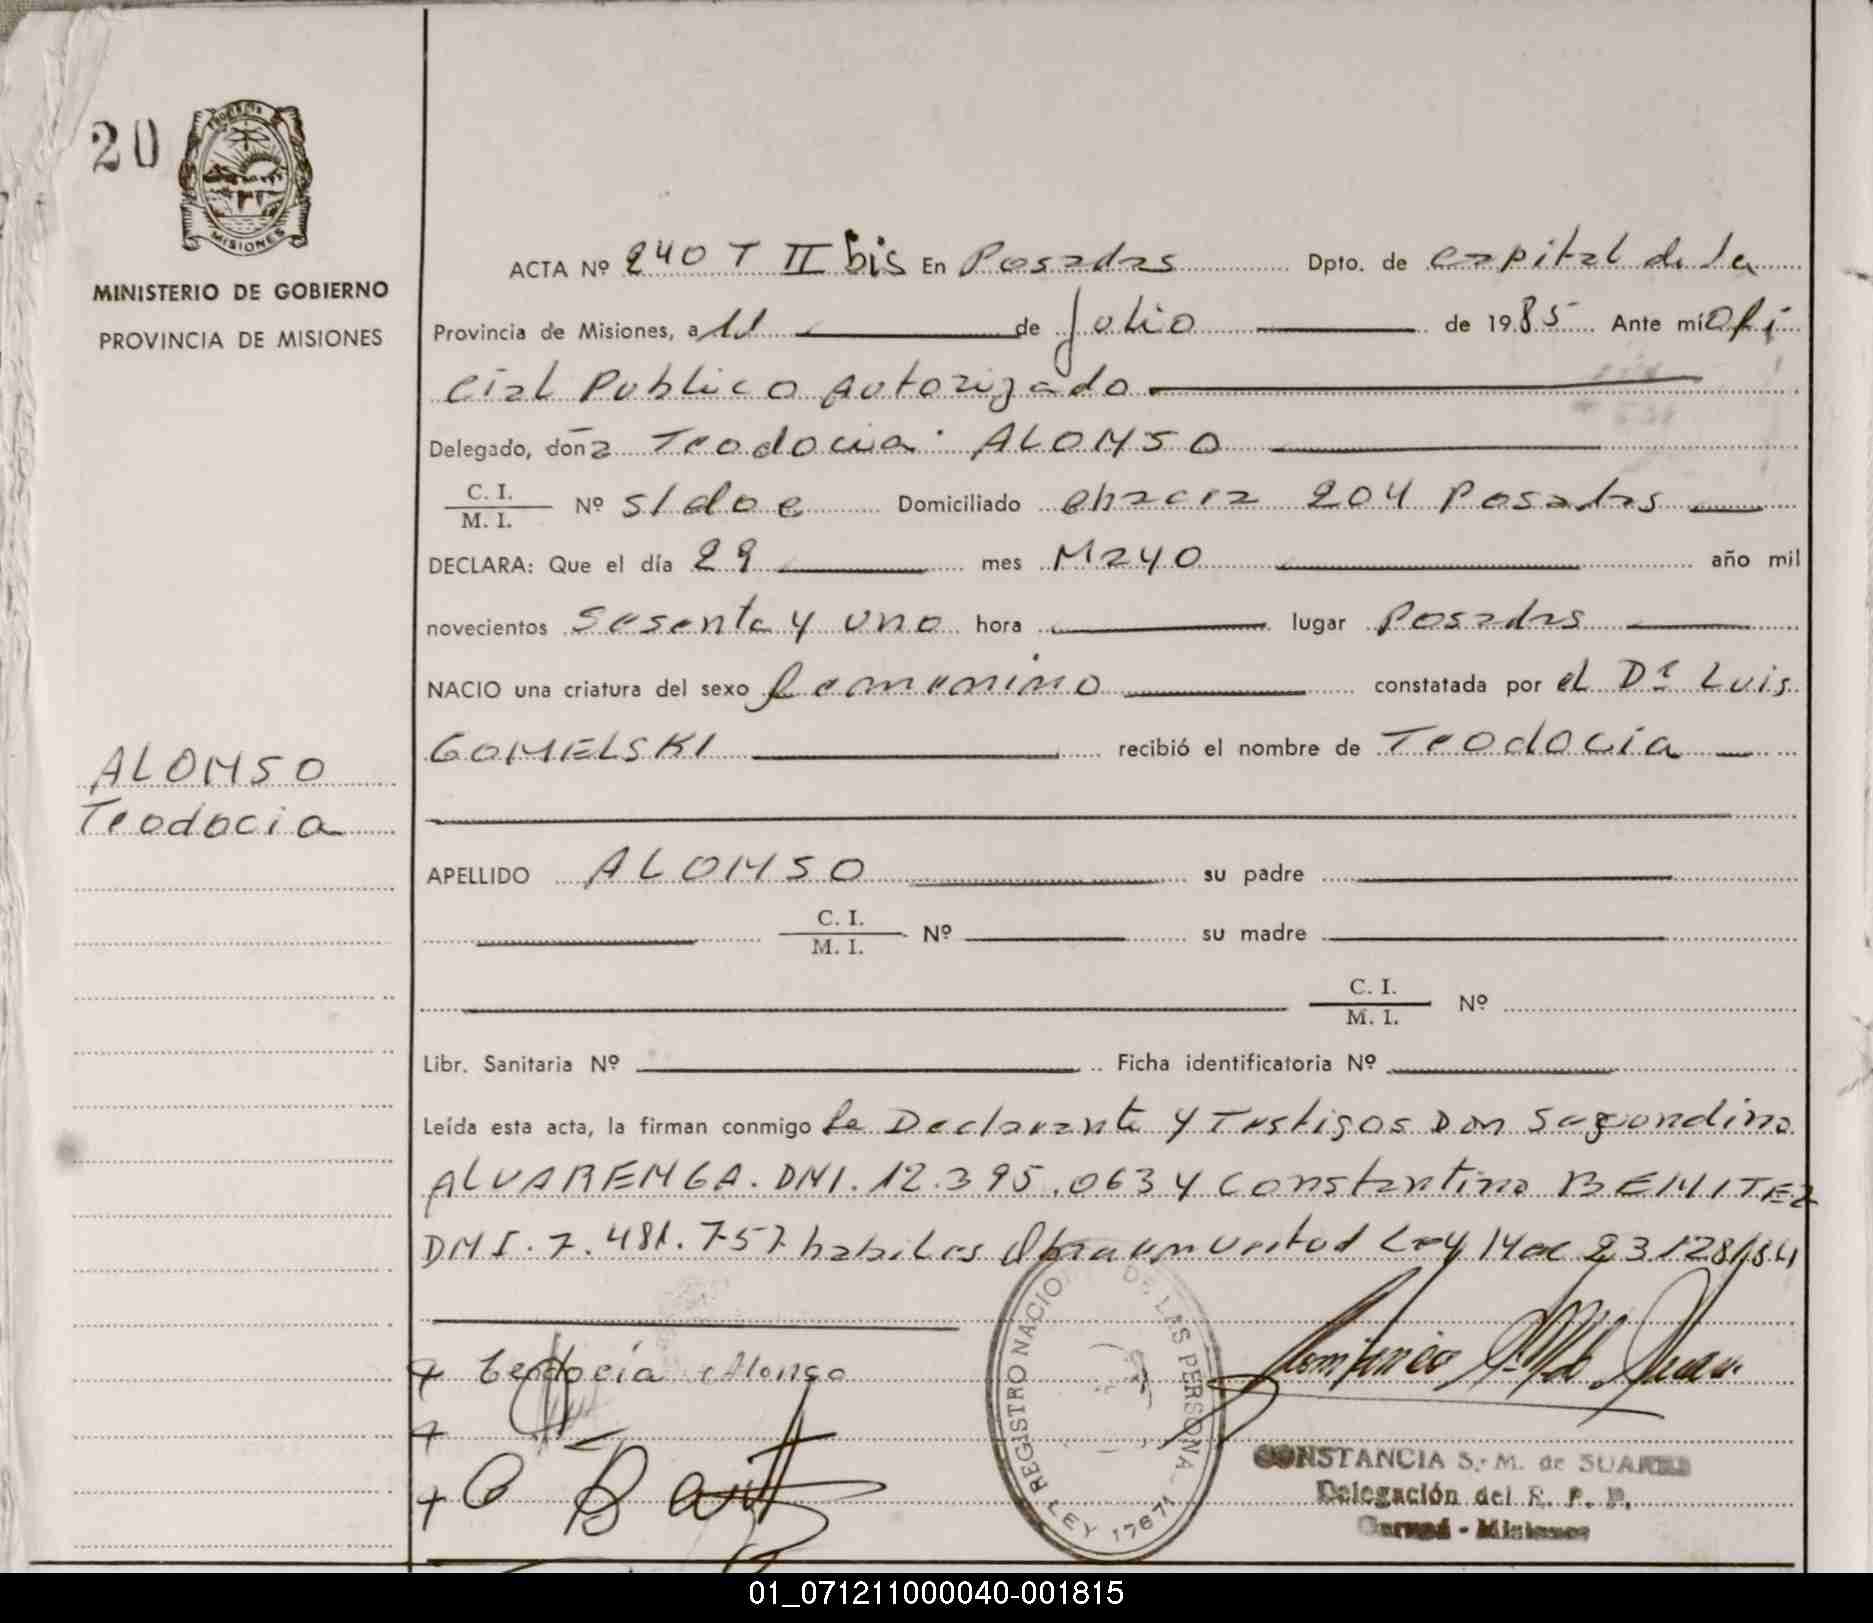 20
MISIONES
MINISTERIO DE GOBIERNO
PROVINCIA DE MISIONES
ALONSO
Teodocia
ACTA Nº 240 T II bis En Posadas Dpto. de capital de la
Provincia de Misiones, a 11 de Julio de 1985 Ante mí Ofi
cial Publico Autorizado
Delegado, doña Teodocia ALONSO
C. I.
M. I. Nº s/doc Domiciliado chacra 204 Posadas
DECLARA: Que el día 29 mes Mayo año mil
novecientos sesenta y uno hora lugar Posadas
NACIO una criatura del sexo femenino constatada por el Dr Luis
GOMELSKI recibió el nombre de Teodocia
APELLIDO ALONSO su padre
C. I.
M. I. Nº su madre
C. I.
M. I. Nº
Libr. Sanitaria Nº Ficha identificatoria Nº
Leída esta acta, la firman conmigo la Declarante y Testigos Don Segundino
ALVARENGA. DNI. 12.395.063 y Constantino BENITEZ
DNI. 7.481.757 habiles Obra en virtud Ley Nac 23.128/84
Teodocia Alonso
REGISTRO NACIO DE LAS PERSONA
LEY 17671
CONSTANCIA S. M. de SUAREZ
Delegación del R. P. P.
Garupá - Misiones
01_071211000040-001815